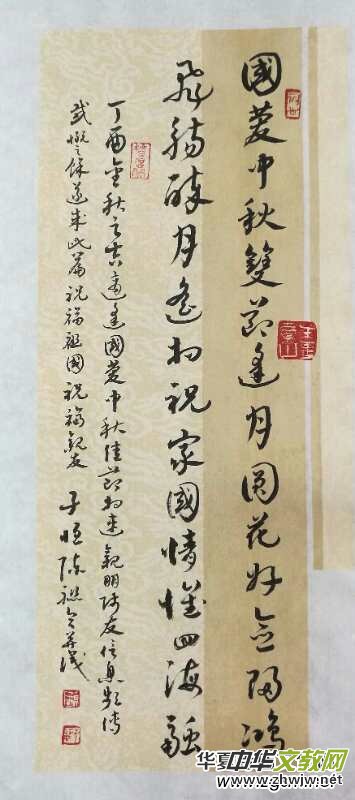 國慶中秋雙節逢月圓花好念歸鴻
飛觴醉月遙相祝家國情懷四海融
丁酉金秋之吉適逢國慶中秋佳節相連親朋師友信息頻傳
感慨之餘遂成此篇祝福祖國祝福親友 子恒陳
华夏中华文教网
www.zhwjw.net